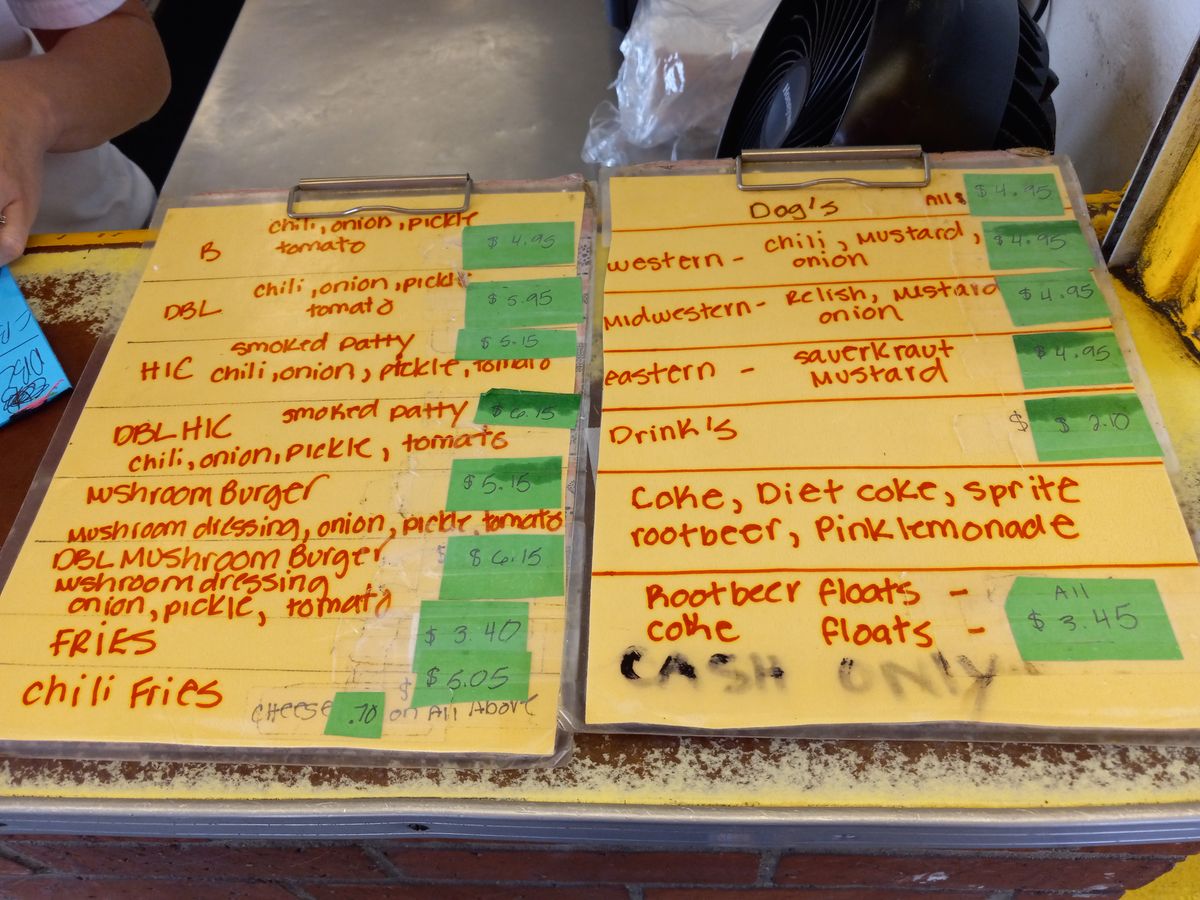 chili, onion, pickle
B tomato $4.95
chili, onion, pickle
DBL tomato $5.95
smoked patty $5.15
HIC chili, onion, pickle, tomato
DBL HIC smoked patty $6.15
chili, onion, pickle, tomato
Mushroom Burger $5.15
Mushroom dressing, onion, pickle, tomato
DBL MUShroom Burger $6.15
Mushroom dressing
onion, pickle, tomato
FRiES $3.40
chili Fries $5.05
CHEESE .70 on All Above
Dog's All $ $4.95
western - chili, Mustard, $4.95
onion
Midwestern - Relish, Mustard $4.95
onion
eastern - sauerkraut $4.95
Mustard
Drink's $ $2.10
Coke, Diet coke, sprite
rootbeer, Pink lemonade
Rootbeer floats - All
coke floats - $3.45
CASH ONLY
Honeywell
DBL